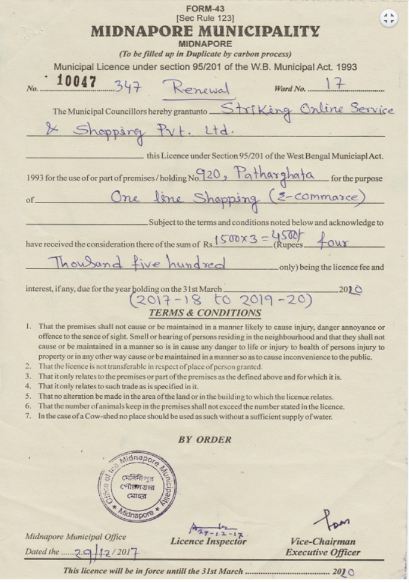 FORM-43
[Sec Rule 123]
MIDNAPORE MUNICIPALITY
MIDNAPORE
(To be filled up in Duplicate by carbon process)
Municipal Licence under section 95/201 of the W.B. Municipal Act. 1993
No. 10047 347 Renewal Ward No. 17
The Municipal Councillors hereby grantunto Striking Online Service
& Shopping Pvt. Ltd.
this Licence under Section 95/201 of the West Bengal Municiapl Act.
1993 for the use of or part of premises / holding No. 920, Patharghata for the purpose
of One line Shopping (E-commarce)
Subject to the terms and conditions noted below and acknowledge to
have received the consideration there of the sum of Rs 1500x3 = 4500/- (Rupees four
Thousand five hundred only) being the licence fee and
interest, if any, due for the year holding on the 31st March 2020
(2017-18 to 2019-20)
TERMS & CONDITIONS
1. That the premises shall not cause or be maintained in a manner likely to cause injury, danger annoyance or
offence to the sence of sight. Smell or hearing of persons residing in the neighbourhood and that they shall not
cause or be maintained in a manner so is in cause any danger to life or injury to health of persons injury to
property or in any other way cause or be maintained in a manner so as to cause inconvenience to the public.
2. That the licence is not transferable in respect of place of person granted.
3. That it only relates to the premises or part of the premises as the defined above and for which it is.
4. That it only relates to such trade as is specified in it.
5. That no alteration be made in the area of the land or in the building to which the licence relates.
6. That the number of animals keep in the premises shall not exceed the number stated in the licence.
7. In the case of a Cow-shed no place should be used as such without a sufficient supply of water.
BY ORDER
Office of the Midnapore Municipality
মেদিনীপুর
পৌরসভার
মোহর
Midnapore
29-12-17
Midnapore Municipal Office
Licence Inspector
Vice-Chairman
Dated the 29/12/2017
Executive Officer
This licence will be in force untill the 31st March 2020